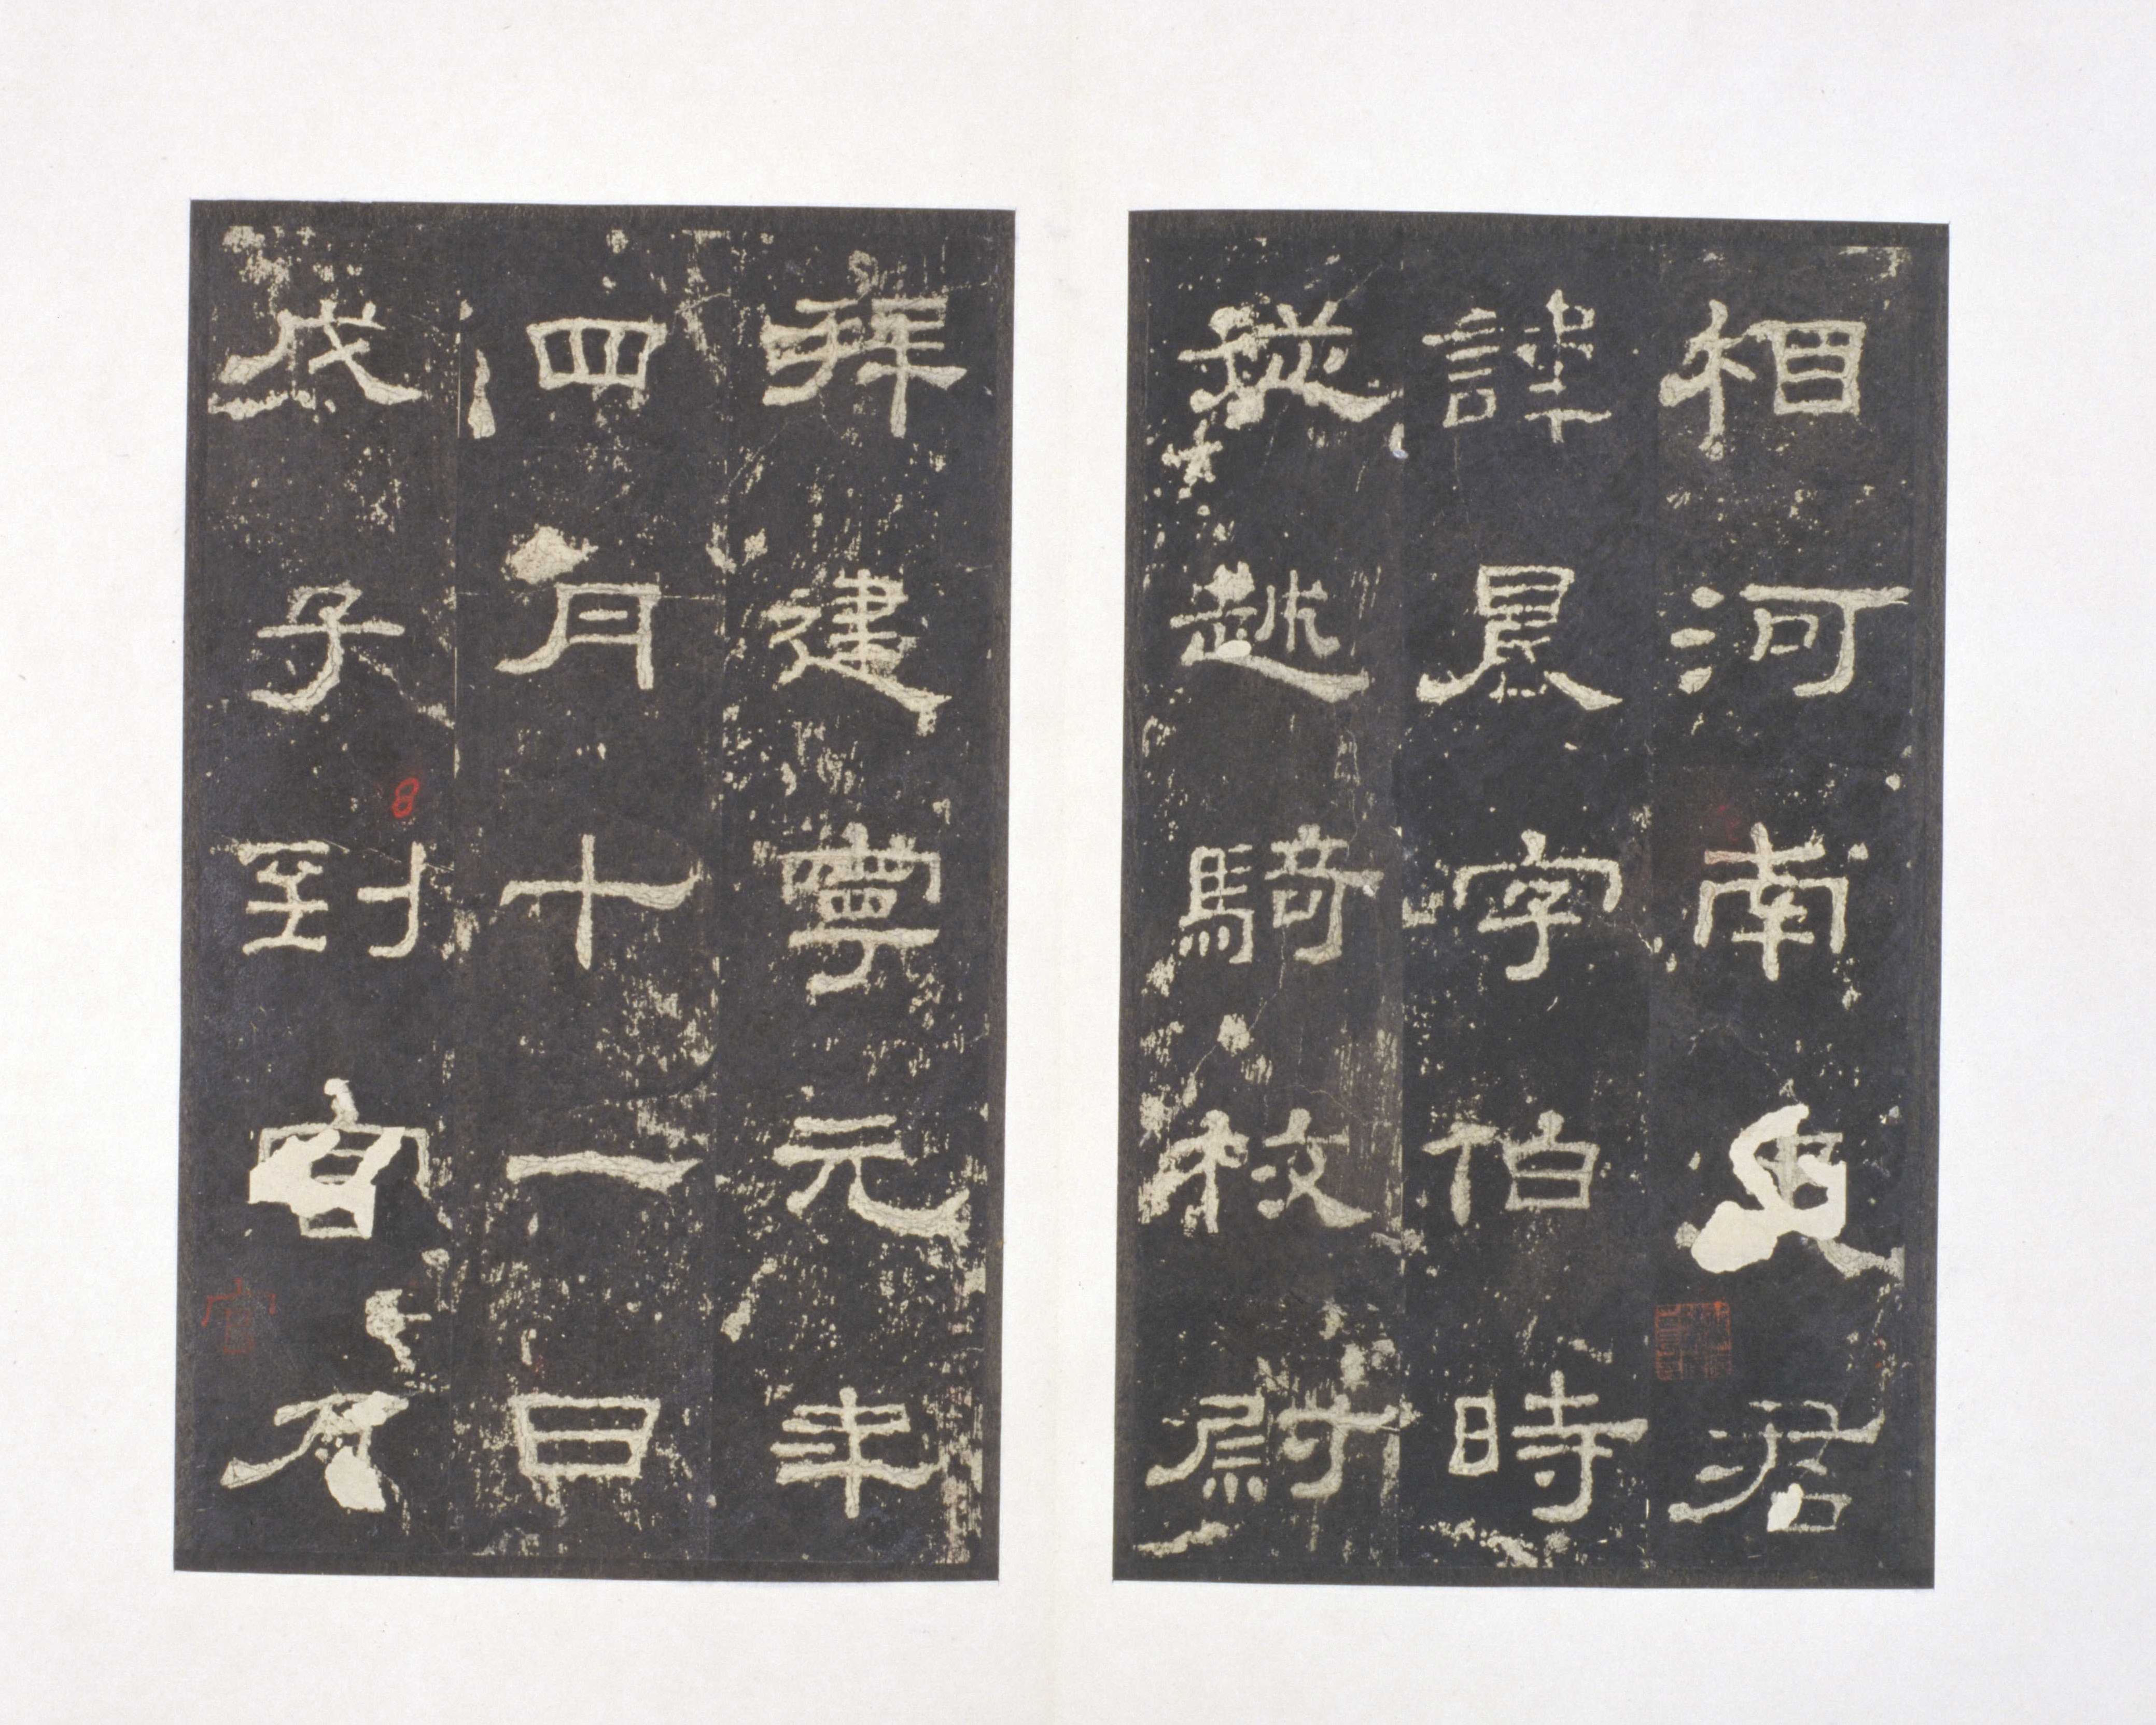 相河南史君
諱晨字伯時
從越騎校尉
拜建寧元年
四月十一日
戊子到官乃
8
官